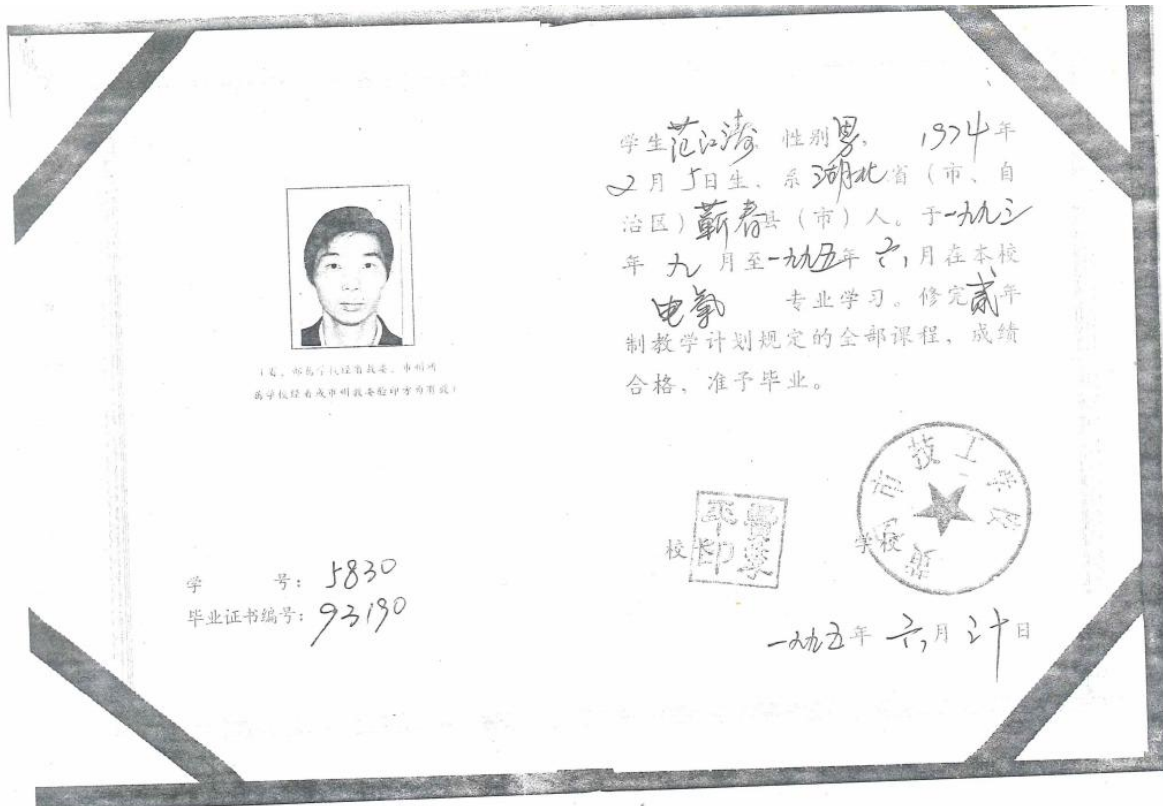 (省、部属学校经省教委、市州所
属学校经省或市州教委验印方为有效)
学 号: 5830
毕业证书编号: 93190
学生范江涛, 性别男, 1974年
2月5日生、系湖北省(市、自
治区)蕲春县(市)人。于一九九三
年九月至一九九五年六月在本校
电氣 专业学习。修完贰年
制教学计划规定的全部课程、成绩
合格、准予毕业。
市技工学校
校长
学校
一九九五年六月三十日